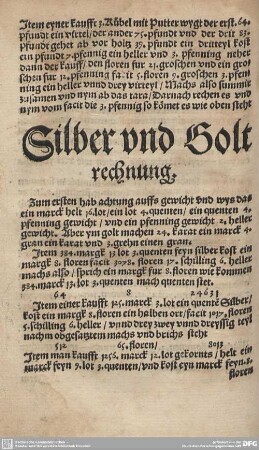 Item eyner kaufft 3. Kübel mit Putter wygt der erst. 64.
pfundt ein virtel/ der ander 75. pfundt vnd der drit 83.
pfundt gehet ab vor holtz 37. pfundt ein dritteyl kost
ein pfundt 7. pfennig ein heller vnd 3. pfenning neher
dann der kauff/ den floren fur 21. groschen vnd ein gro
schen fur 12. pfenning facit 5. floren 9. groschen 3. pfen
nig ein heller vnnd drey virteyl/ Machs also summir
zusamen vnd nym ab das tara/ Darnach rechen es vnd
nym vom facit die 3. pfennig so kömet es wie oben steht
Silber vnd Golt
rechnung.
Zum ersten hab achtung auffs gewicht vnd wys das
ein marck helt 16. lot/ ein lot 4. quenten/ ein quenten 4.
pfenning gewicht/ vnd ein pfenning gewicht 2. heller
gewicht. Aber yn golt machen 24. karat ein marck 4.
gran ein karat vnd 3. grehn einen gran.
Item 384. margk 13. lot 3. quenten feyn silber kost ein
margk 8. floren facit 3078. floren 17. schilling 6. heller
machs also/ sprich ein margk fur 8. floren wie kommen
384. marck 13. lot 3. quenten mach quenten stet.
64 8 24631
Item einer kaufft 125. marck 3. lot ein quente Silber/
kost ein margk 8. floren ein halben ort/ facit 1017. floren
5. schilling 6. heller/ vnnd drey zwey vnd dreyssig teyl
nachm obgesatzten machs vnd brichs steht
512 65. floren/ 8013
Item man kaufft 1256. marck 12. lot gekornts/ helt ein
marck feyn 9. lot 3. quenten/ vnd kost eyn marck feyn 8.
floren